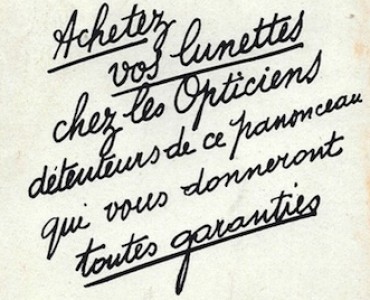 Achetez
vos lunettes
chez les Opticiens
détenteurs de ce panonceau
qui vous donneront
toutes garanties